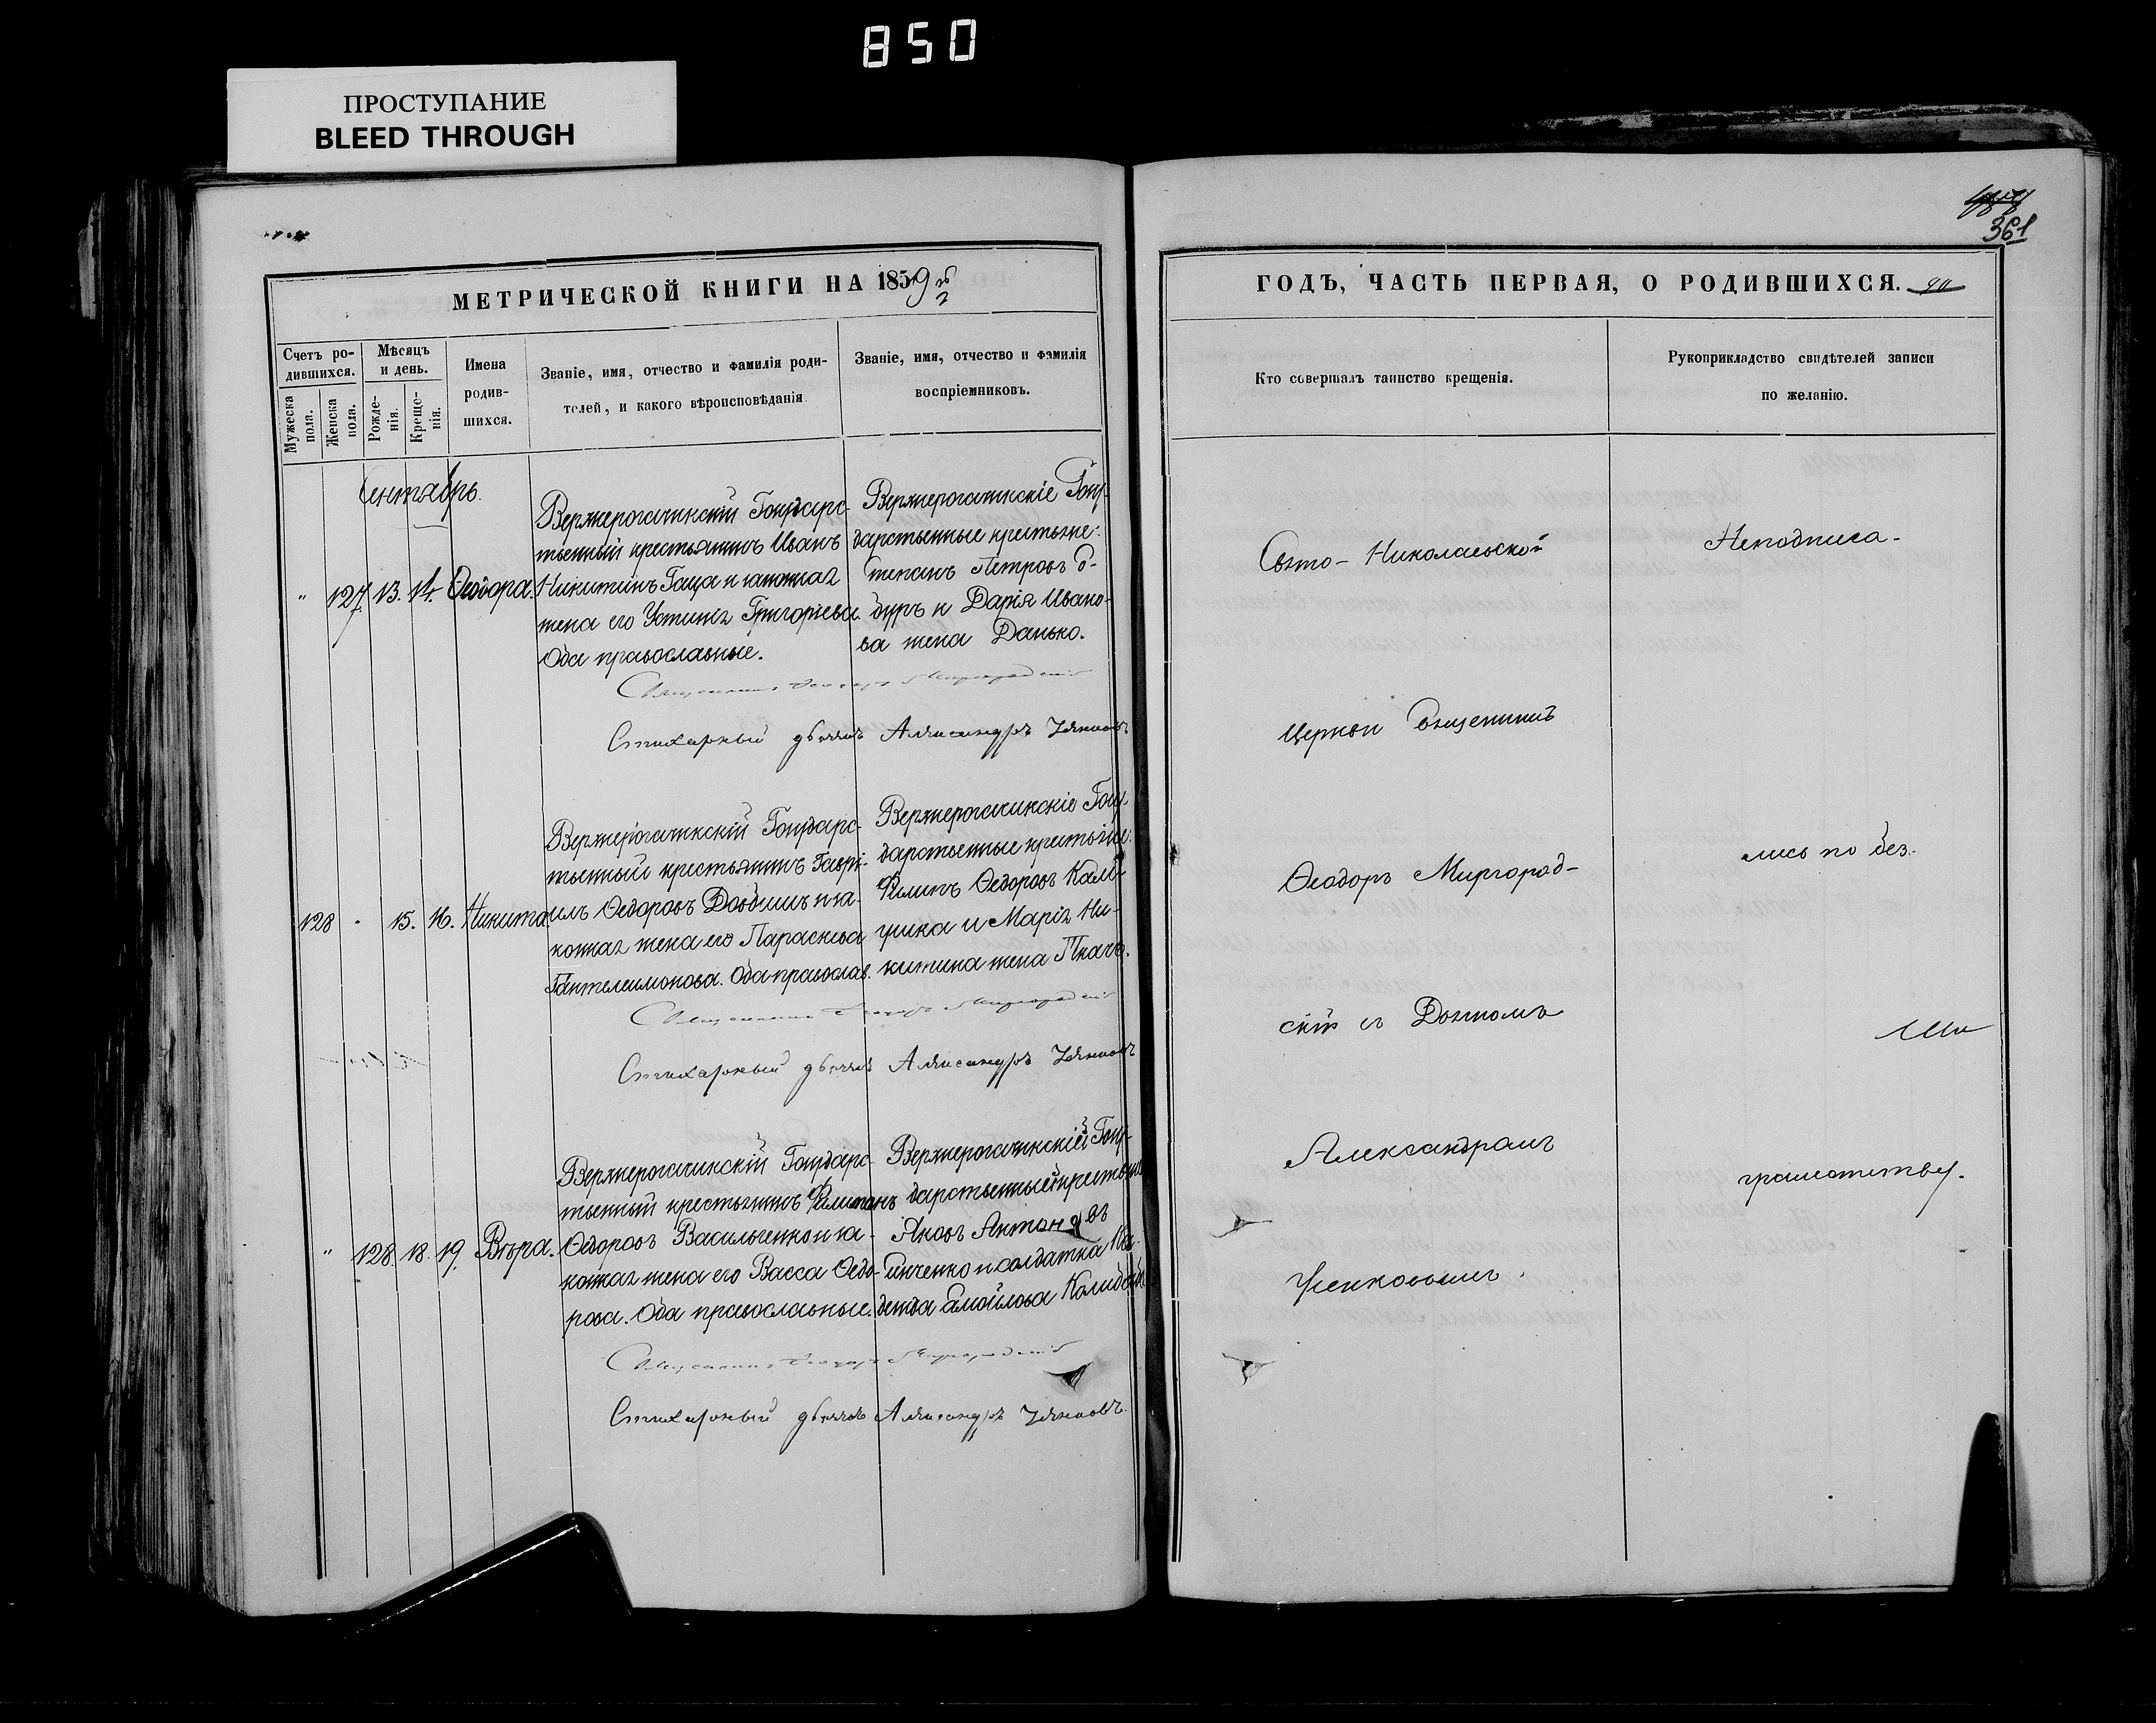 850
ПРОСТУПАНИЕ
BLEED THROUGH
361
МЕТРИЧЕСКОЙ КНИГИ НА 1859
ГОДЪ, ЧАСТЬ ПЕРВАЯ, О РОДИВШИХСЯ.
Счетъ ро-
дившихся.
Мужеска пола.
Женска пола.
Мѣсяцъ
и день.
Рожде-
нія.
Креще-
нія.
Имена
родив-
шихся.
Званіе, имя, отчество и фамилія роди-
телей, и какого вѣроисповѣданія
Званіе, имя, отчество и фамилія
воспріемниковъ.
Кто совершалъ таинство крещенія.
Рукоприкладство свидѣтелей записи
по желанію.
Сентябрь.
" 127 13. 14. Ѳеодора.
Верхнерогачикскій Государс-
твенный крестьянинъ Иванъ
Никитинъ Гаца и законная
жена его Устинія Григоріева.
Оба православные.
Верхнерогачикскіе Госу-
дарственные крестьяне:
Степанъ Петровъ
и Дарія Ивано-
ва жена Данько.
Священникъ Ѳеодоръ Миргородскій
Стихарный дьячокъ Александръ
128 " 15. 16. Никита.
Верхнерогачикскій Государс-
твенный крестьянинъ Гаврі-
илъ Ѳедоровъ Довбишъ и за-
конная жена его Параскева
Пантелеимонова. Оба православ.
Верхнерогачикскіе Госу-
дарственные крестьяне:
Филипъ Ѳедоровъ Кали-
и Марія Ни-
китина жена Ткачъ.
Священникъ Ѳеодоръ Миргородскій
Стихарный дьячокъ Александръ
" 128. 18. 19. Вѣра.
Верхнерогачикскій Государс-
твенный крестьянинъ
Ѳедоровъ Васильченко и за-
конная жена его Васса Ѳедо-
рова. Оба православные.
Верхнерогачикскій Госу-
дарственный крестьянинъ
Яковъ Антоновъ
и солдатка
Самойлова
Священникъ Ѳеодоръ Миргородскій
Стихарный дьячокъ Александръ
Свято-Николаевской
Церкви Священникъ
Ѳеодоръ Миргород-
скій съ Дьячкомъ
Александромъ
Неподписа-
лись по без-
грамотству.